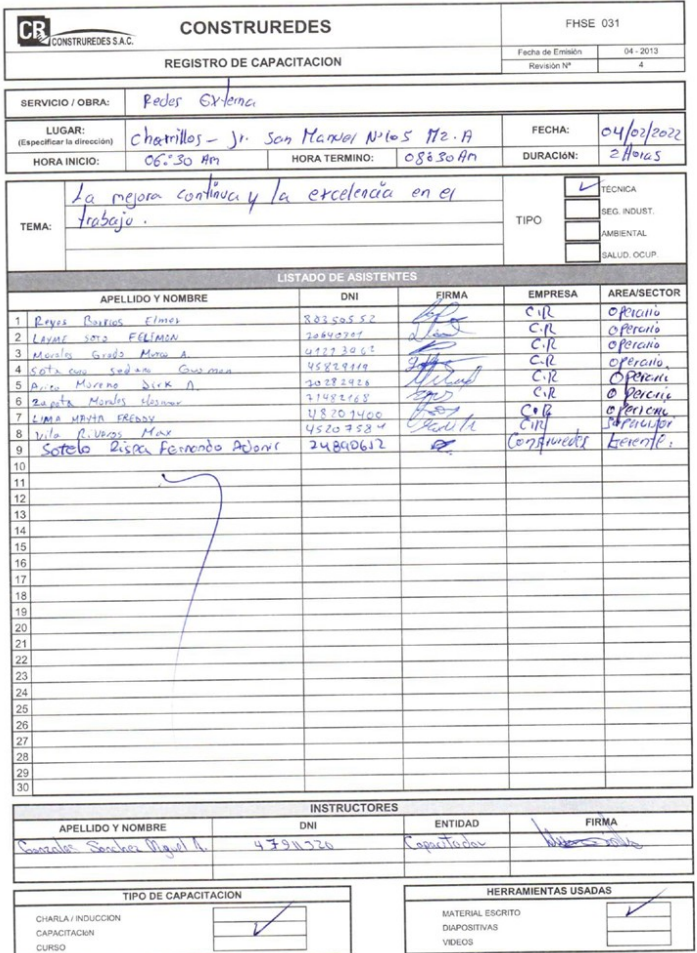 CR CONSTRUREDES S.A.C.
CONSTRUREDES
FHSE 031
REGISTRO DE CAPACITACION
Fecha de Emisión 04 - 2013
Revisión N° 4
SERVICIO / OBRA: Redes Externa
LUGAR: (Especificar la dirección) Jr. San Manuel
FECHA: 04/02/2022
HORA INICIO: 06:30 Am HORA TERMINO: 08:30 Am DURACIóN: 2 Horas
TEMA: La mejora continua y la excelencia en el
trabajo.
TIPO
TÉCNICA
SEG. INDUST.
AMBIENTAL
SALUD. OCUP.
LISTADO DE ASISTENTES
APELLIDO Y NOMBRE DNI FIRMA EMPRESA AREA/SECTOR
1 Reyes Barrios Elmer 80350552 C.R operario
2 LAYME SOTO FELIMON C.R operario
3 Morales C.R operario
4 45829119 C.R operario
5 Moreno C.R operario
6 Zapata Morales 71482168 C.R operario
7 LIMA MAYTA FREDDY 48201400 C.R operario
8 Max 45207584 C.R supervisor
9 Sotelo Fernando Adonis Construredes Gerente.
10
11
12
13
14
15
16
17
18
19
20
21
22
23
24
25
26
27
28
29
30
INSTRUCTORES
APELLIDO Y NOMBRE DNI ENTIDAD FIRMA
Gonzales Sanchez Miguel A. Capacitador
TIPO DE CAPACITACION
CHARLA / INDUCCION
CAPACITACIóN
CURSO
HERRAMIENTAS USADAS
MATERIAL ESCRITO
DIAPOSITIVAS
VIDEOS